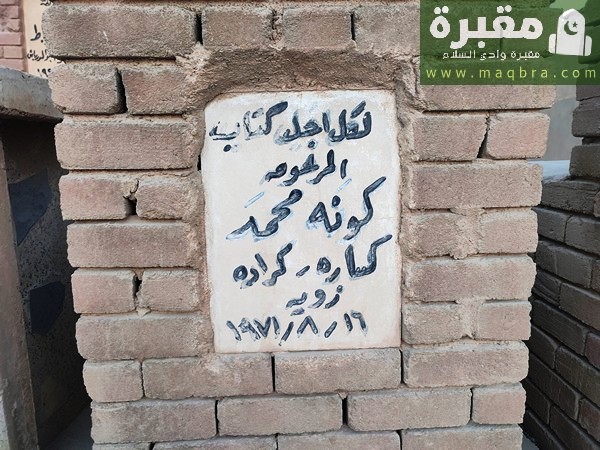 مقبرة
مقبرة وادي السلام
www.maqbra.com
لكل اجل كتاب
المرحومه
كونه محمد
كراده
زويه
١٩٧١/٨/١٦